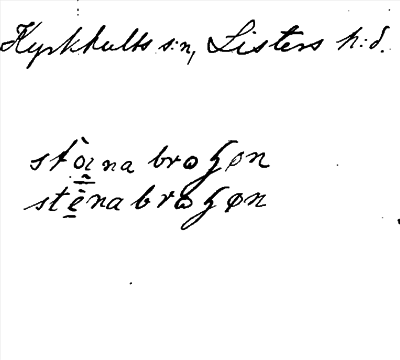 Kyrkhults s:n, Listers h:d.
stàina broɧøn
stènabroɧøn